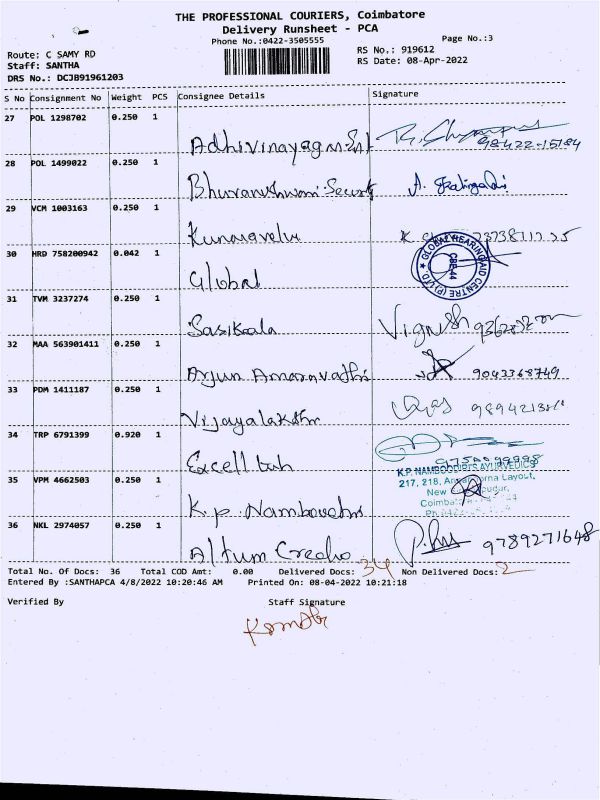 THE PROFESSIONAL COURIERS, Coimbatore
Delivery Runsheet - PCA
Phone No.:0422-3505555
Page No.:3
Route: C SAMY RD
Staff: SANTHA
DRS No.: DCJB91961203
RS No.: 919612
RS Date: 08-Apr-2022
S No Consignment No Weight PCS Consignee Details Signature
27 POL 1298702 0.250 1
Adhivinayaga 98422-15184
28 POL 1499022 0.250 1
Bhuvaneshwari Security A.
29 VCM 1003163 0.250 1
Kumaravelu K
30 HRD 758200942 0.042 1
Global
GLOBAL HEARING AID CENTRE (P) LTD
CBE-44
31 TVM 3237274 0.250 1
Sasikala Vignesh
32 MAA 563901411 0.250 1
Arjun Amaravathi 9043368749
33 PDM 1411187 0.250 1
Vijayalakshmi
34 TRP 6791399 0.920 1
Excell
35 VPM 4662503 0.250 1
K.P. NAMBOODIRI'S AYURVEDICS
217, 218, Layout,
New
K.P Namboodhri
36 NKL 2974057 0.250 1
Altum Credho 9789271648
Total No. Of Docs: 36 Total COD Amt: 0.00 Delivered Docs: 34 Non Delivered Docs: 2
Entered By :SANTHAPCA 4/8/2022 10:20:46 AM Printed On: 08-04-2022 10:21:18
Verified By Staff Signature